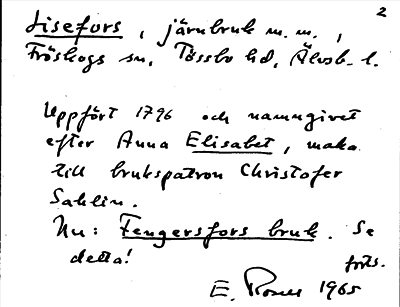 2
Lisefors, järnbruk m. m.,
Fröskogs sn, Tössbo hd, Älvsb. l.
Uppfört 1796 och namngivet
efter Anna Elisabet, maka
till brukspatron Christofer
Sahlin.
Nu: Fengersfors bruk. Se
detta! forts.
E. Rosell 1965